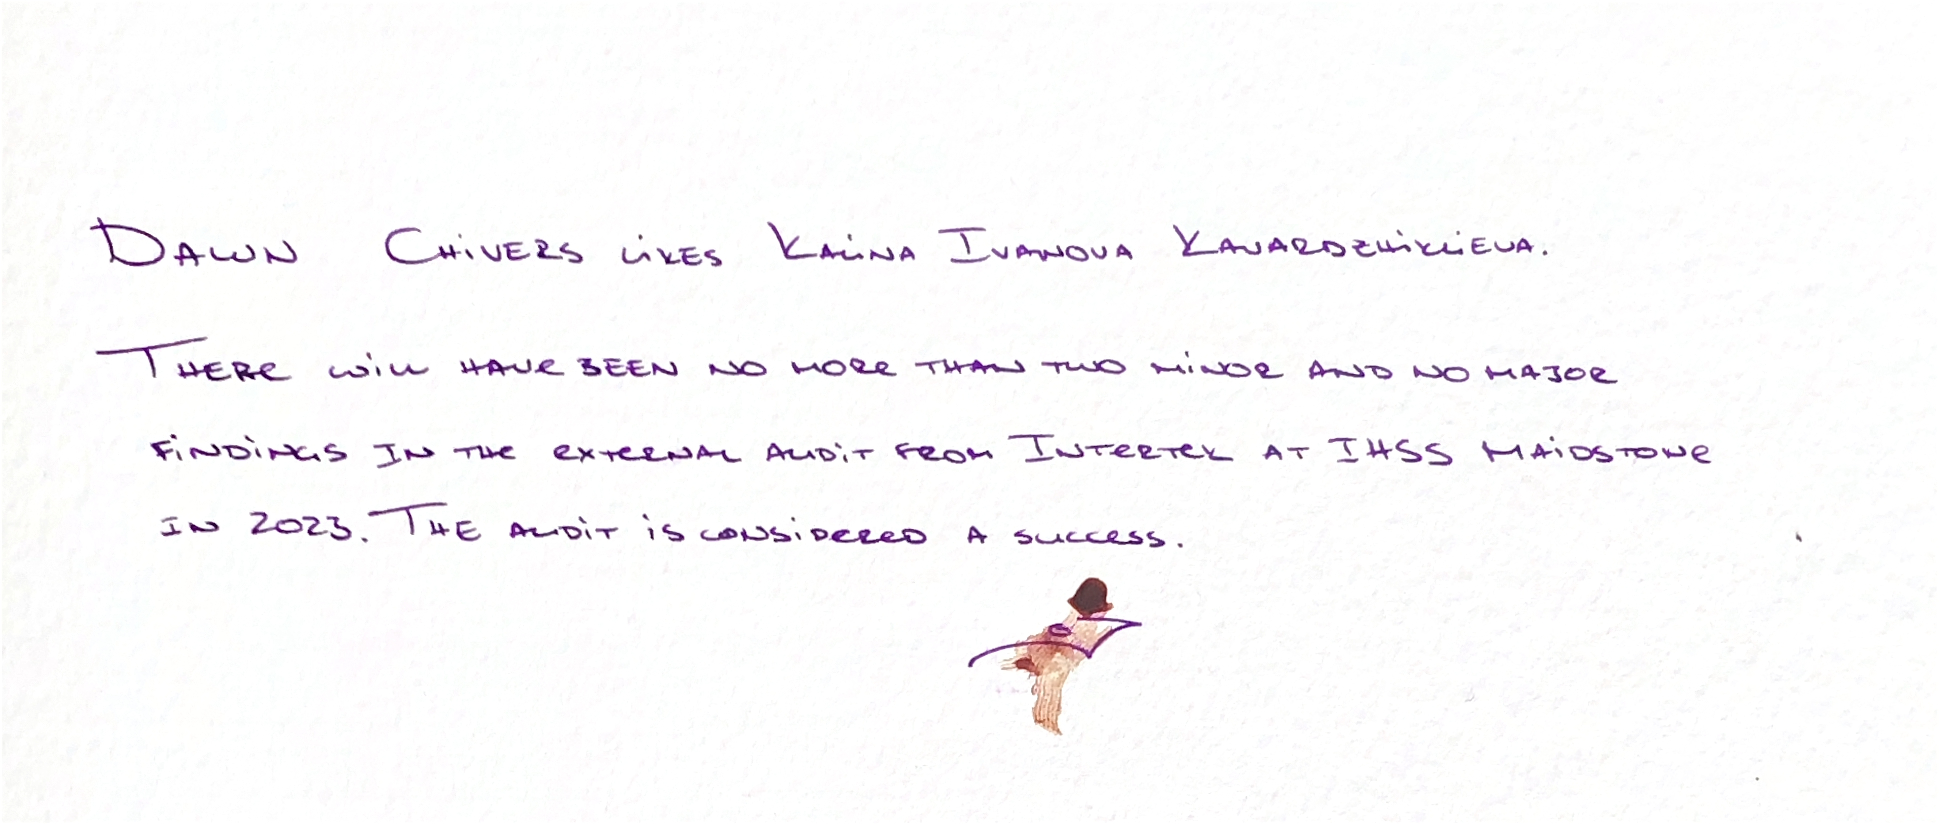 Dawn Chivers likes Kalina Ivanova Kavardzhiklieva.
There will have been no more than two minor and no major
findings in the external audit from Intertek at IHSS Maidstone
in 2023. The audit is considered a success.